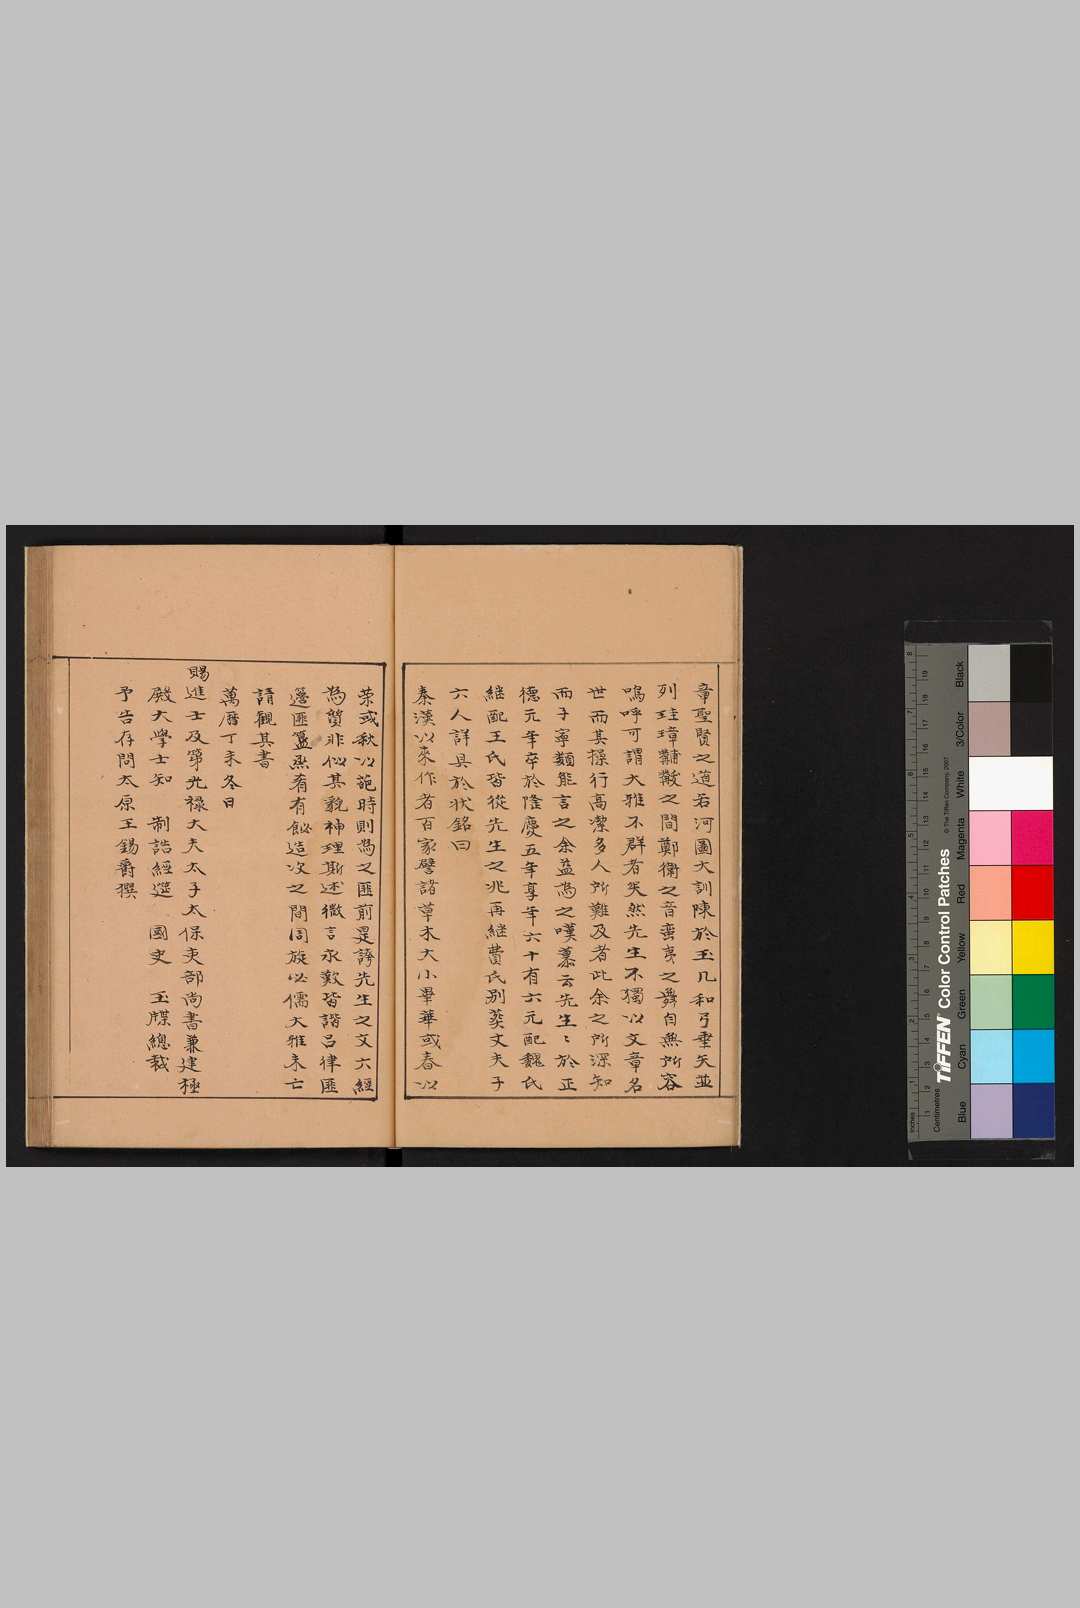 章聖賢之道若河圖大訓陳於玉几和弓垂矢並
列珪璋黼黻之間鄭衛之音蛮夷之舞自無所容
嗚呼可謂大雅不群者矣然先生不獨以文章名
世而其操行高潔多人所難及者此余之所深知
而子寧類能言之余益為之嘆慕云先生〻於正
德元年卒於隆慶五年享年六十有六元配魏氏
継配王氏皆從先生之兆再継費氏别葬丈夫子
六人詳具於狀銘曰
秦漢以來作者百家譬諸草木大小畢華或春以
荣或秋以葩時則為之匪前是誇先生之文六經
為質非似其貌神理斯述微言永歎皆諧吕律匪
邊匪簋烝肴有飶造次之間周旋必儒大雅未亡
請觀其書
萬曆丁未冬日
賜進士及第光禄大夫太子太保吏部尚書兼建極
殿大學士知 制誥經筵 國史 玉牒總裁
予告存問太原王錫爵撰
Black
3/Color
White
Magenta
Red
Yellow
Green
Cyan
Blue
TIFFEN Color Control Patches
© The Tiffen Company, 2007
Centimetres
Inches